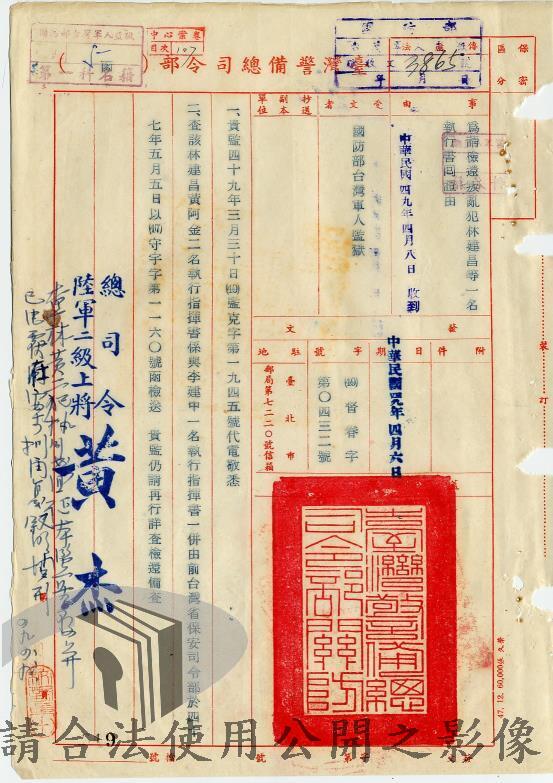 臺灣警備總司令部
保密
區分
事由
為請檢還叛亂犯林建昌等一名
執行書回證由
受文者
國防部台灣軍人監獄
抄送
副本
單位
中華民國四九年四月八日收到
附件
發文
日期
中華民國四九年四月六日
字號
(49)督眷字
第〇四三二號
駐地
臺北市
郵局第七二二〇號信箱
一、貴監四十九年三月三十日(49)監克字第一九四五號代電敬悉
二、查該林建昌黃阿金二名執行指揮書係與李建中一名執行指揮書一併由前台灣省保安司令部於四十
七年五月五日以(47)守宇字第一一六〇號函檢送 貴監仍請再行詳查檢還備查
總司令
陸軍二級上將
黃杰
臺灣警備總
司令部關防
國防部
3865
年 月 日
目次 107
第一科
裝
訂
47. 12. 60,000張 久榮
19
請合法使用公開之影像